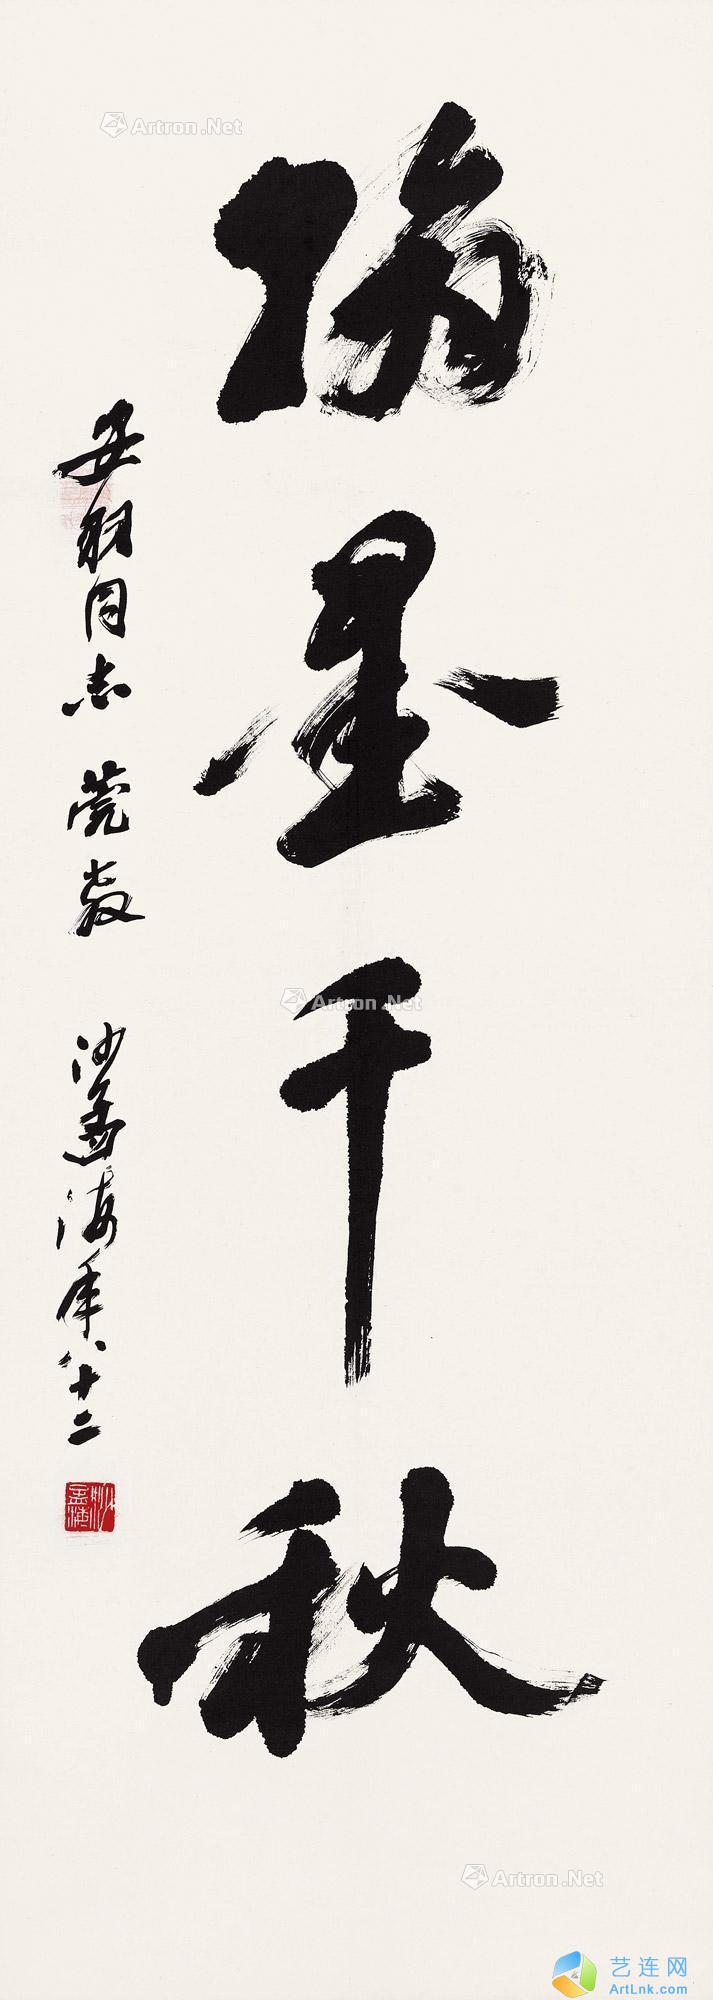 墨千秋
同志 莞教 沙孟海年八十二
沙孟海
Artron.Net
Artron.Net
Artron.Net
艺连网
ArtLnk.com